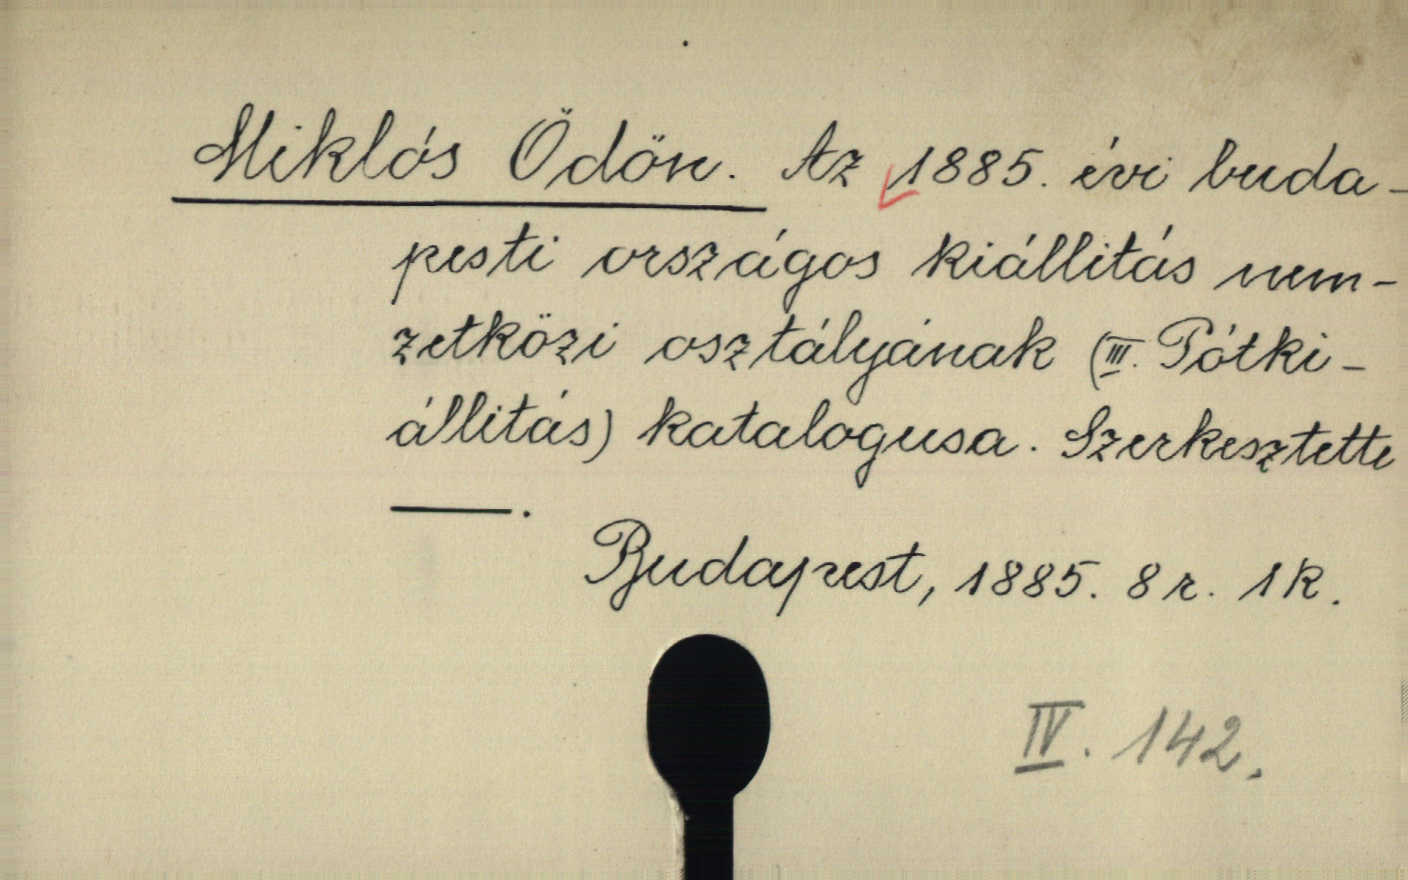 Miklós Ödön. Az 1885. évi buda-
pesti országos kiállitás nem-
zetközi osztályának (III. Pótki-
állitás) katalogusa. Szerkesztette
——.
Budapest, 1885. 8 r. 1 K.
IV. 142.